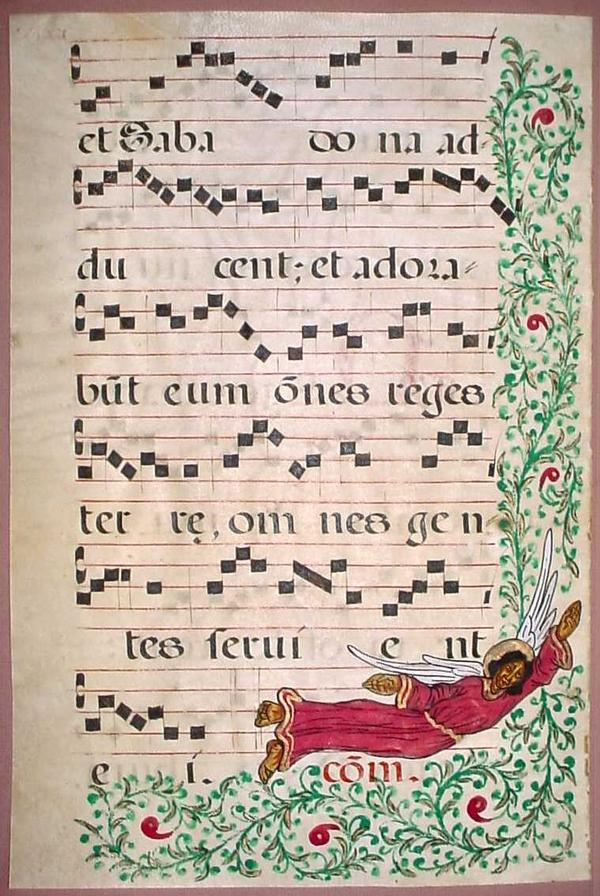 et Saba do na ad-
du cent; et adora-
būt eum ōnes reges
ter rę, om nes gen
tes serui e nt
e i. cōm.